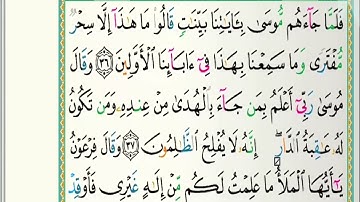 فَلَمَّا جَآءَهُم مُّوسَىٰ بِـَٔايَـٰتِنَا بَيِّنَـٰتٍ قَالُوا۟ مَا هَـٰذَآ إِلَّا سِحْرٌ
مُّفْتَرًى وَمَا سَمِعْنَا بِهَـٰذَا فِىٓ ءَابَآئِنَا ٱلْأَوَّلِينَ ٣٦ وَقَالَ
مُوسَىٰ رَبِّىٓ أَعْلَمُ بِمَن جَآءَ بِٱلْهُدَىٰ مِنْ عِندِهِۦ وَمَن تَكُونُ
لَهُۥ عَـٰقِبَةُ ٱلدَّارِ ۖ إِنَّهُۥ لَا يُفْلِحُ ٱلظَّـٰلِمُونَ ٣٧ وَقَالَ فِرْعَوْنُ
يَـٰٓأَيُّهَا ٱلْمَلَأُ مَا عَلِمْتُ لَكُم مِّنْ إِلَـٰهٍ غَيْرِى فَأَوْقِدْ